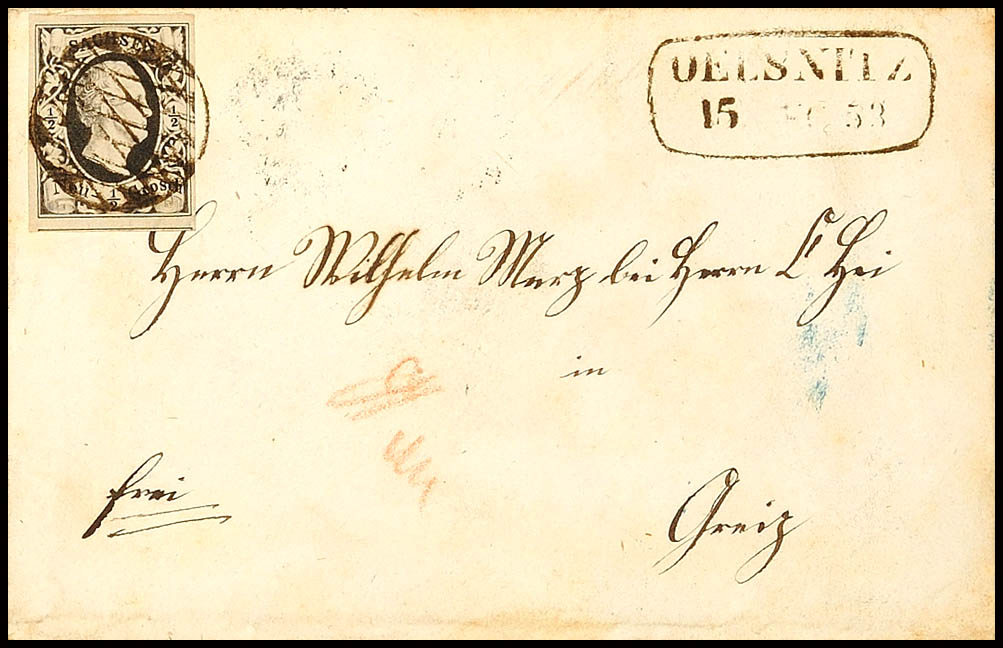 SACHSEN
½ ½
Neu- ½ Grosch
OELSNITZ
15 53
Herrn Wilhelm Merz bei Herrn C Hei
in
frei
Greiz